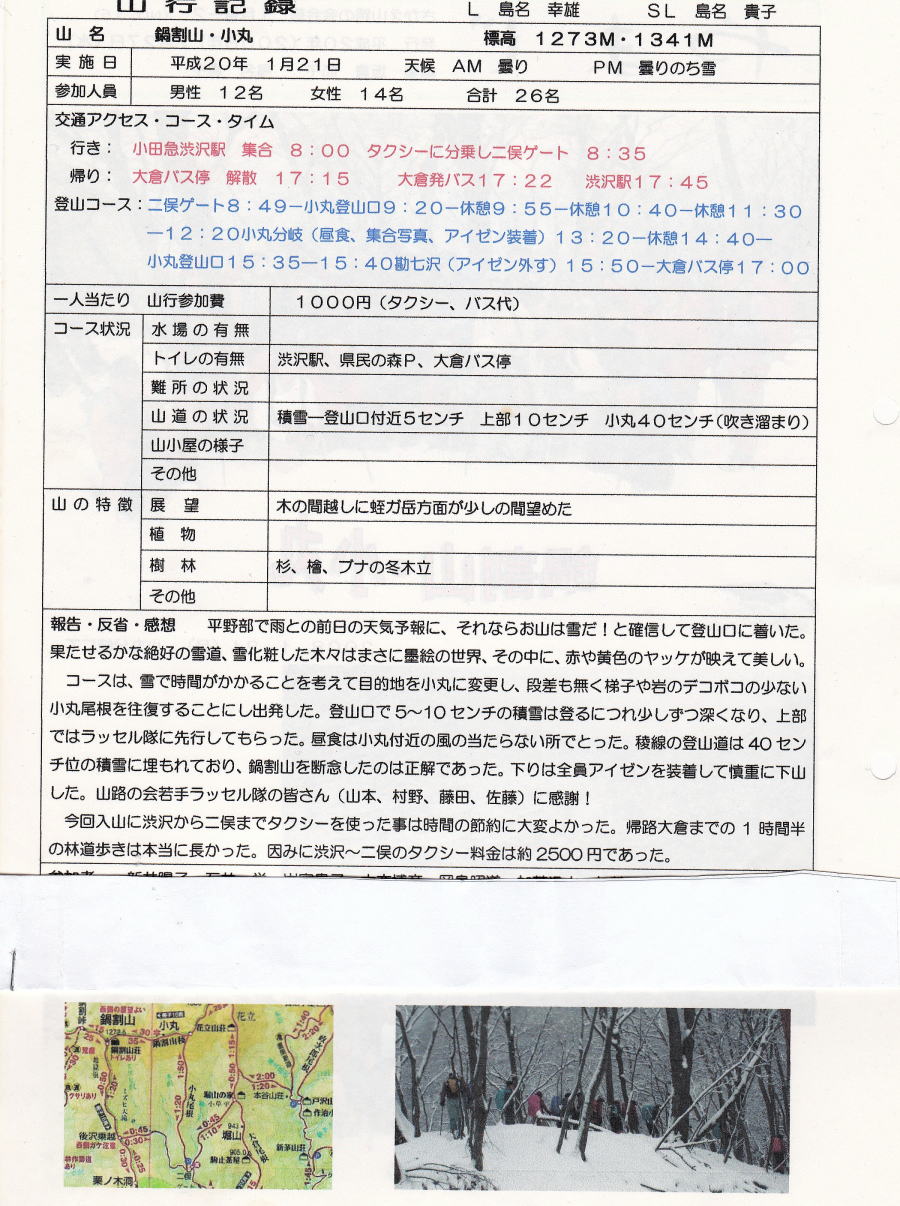 山行記録
L 島名 幸雄 SL 島名 貴子
山 名 鍋割山・小丸 標高 1273M・1341M
実施日 平成20年 1月21日 天候 AM 曇り PM 曇りのち雪
参加人員 男性 12名 女性 14名 合計 26名
交通アクセス・コース・タイム
行き： 小田急渋沢駅 集合 8：00 タクシーに分乗し二俣ゲート 8：35
帰り： 大倉バス停 解散 17：15 大倉発バス17：22 渋沢駅17：45
登山コース：二俣ゲート8：49－小丸登山口9：20－休憩9：55－休憩10：40－休憩11：30
―12：20小丸分岐（昼食、集合写真、アイゼン装着）13：20－休憩14：40―
小丸登山口15：35―15：40勘七沢（アイゼン外す）15：50－大倉バス停17：00
一人当たり 山行参加費 1000円（タクシー、バス代）
コース状況 水場の有無
トイレの有無 渋沢駅、県民の森P、大倉バス停
難所の状況
山道の状況 積雪―登山口付近5センチ 上部10センチ 小丸40センチ（吹き溜まり）
山小屋の様子
その他
山の特徴 展 望 木の間越しに蛭ガ岳方面が少しの間望めた
植 物
樹 林 杉、檜、ブナの冬木立
その他
報告・反省・感想 平野部で雨との前日の天気予報に、それならお山は雪だ！と確信して登山口に着いた。
果たせるかな絶好の雪道、雪化粧した木々はまさに墨絵の世界、その中に、赤や黄色のヤッケが映えて美しい。
コースは、雪で時間がかかることを考えて目的地を小丸に変更し、段差も無く梯子や岩のデコボコの少ない
小丸尾根を往復することにし出発した。登山口で5～10センチの積雪は登るにつれ少しずつ深くなり、上部
ではラッセル隊に先行してもらった。昼食は小丸付近の風の当たらない所でとった。稜線の登山道は40セン
チ位の積雪に埋もれており、鍋割山を断念したのは正解であった。下りは全員アイゼンを装着して慎重に下山
した。山路の会若手ラッセル隊の皆さん（山本、村野、藤田、佐藤）に感謝！
今回入山に渋沢から二俣までタクシーを使った事は時間の節約に大変よかった。帰路大倉までの1時間半
の林道歩きは本当に長かった。因みに渋沢～二俣のタクシー料金は約2500円であった。
鍋割山
1272.5
鍋割山荘
トイレあり
小丸
鍋割山稜
花立山荘
花立
小丸尾根
1:50
1:20
1:15
0:50
2:00
1:20
駒山の家
小草平
本谷山荘
戸沢山
作治小
堀山
943
0:45
1:10
905.0
駒止茶屋
新茅山荘
後沢乗越
西側ガケ注意
0:45
0:30
ミズヒ大滝
クサリあり
栗ノ木洞
0:25